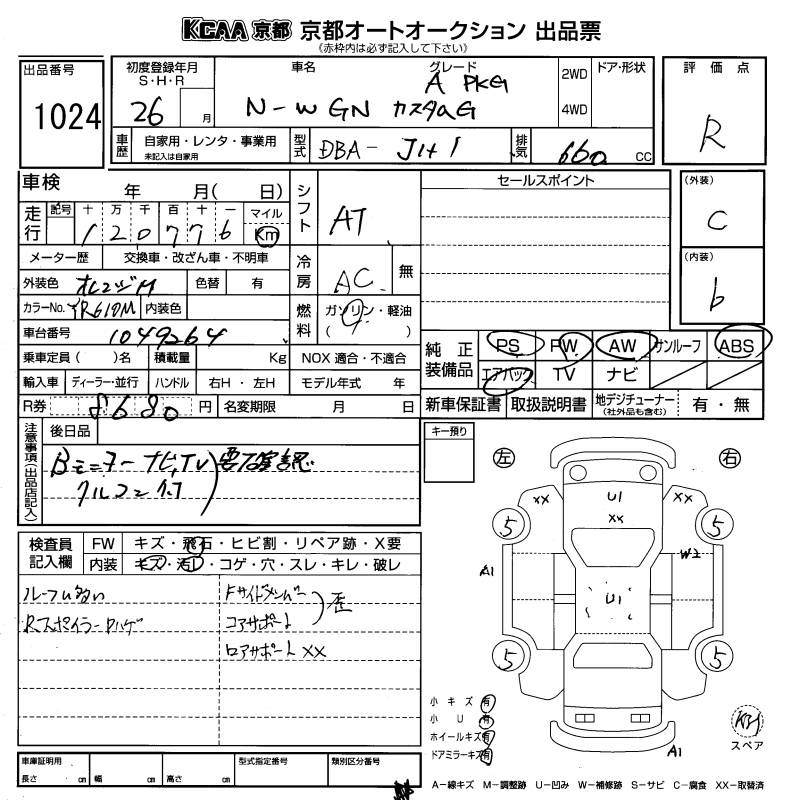 KCAA 京都 京都オートオークション 出品票
(赤枠内は必ず記入して下さい)
出品番号 1024
初度登録年月 S・H・R 26 月
車名 グレード N-WGN カスタムG A PKG
2WD 4WD
ドア・形状
評価点 R
車歴 自家用・レンタ・事業用 未記入は自家用
型式 DBA-JH1
排気 660 cc
車検 年 月( 日)
走行 記号 十 万 千 百 十 一 マイル Km
120776
メーター歴 交換車・改ざん車・不明車
外装色 オレンジM 色替 有
カラーNo. YR610M 内装色
車台番号 1049264
乗車定員( )名 積載量 Kg
輸入車 ディーラー・並行 ハンドル 右H・左H
R券 8680 円 名変期限 月 日
シフト AT
冷房 AC 無
燃料 ガソリン・軽油 ( )
NOX 適合・不適合
モデル年式 年
セールスポイント
(外装) C
(内装) b
純正装備品 PS PW AW サンルーフ ABS
エアバック TV ナビ
新車保証書 取扱説明書 地デジチューナー (社外品も含む) 有・無
注意事項(出品店記入)
後日品
Bモニター ナビ,TV 要確認
検査員記入欄
FW キズ・飛石・ヒビ割・リペア跡・X要
内装 キズ・汚レ・コゲ・穴・スレ・キレ・破レ
Fサイドメンバー
コアサポート 歪
ロアサポート XX
キー預り
左 右
XX U1 XX
XX
5 5
A1 W2
U1
5 5
A1
小キズ 有
小U 有
ホイールキズ 有
ドアミラーキズ 有
スペア
車庫証明用 長さ cm 幅 cm 高さ cm
型式指定番号 類別区分番号
A-線キズ M-調整跡 U-凹み W-補修跡 S-サビ C-腐食 XX-取替済